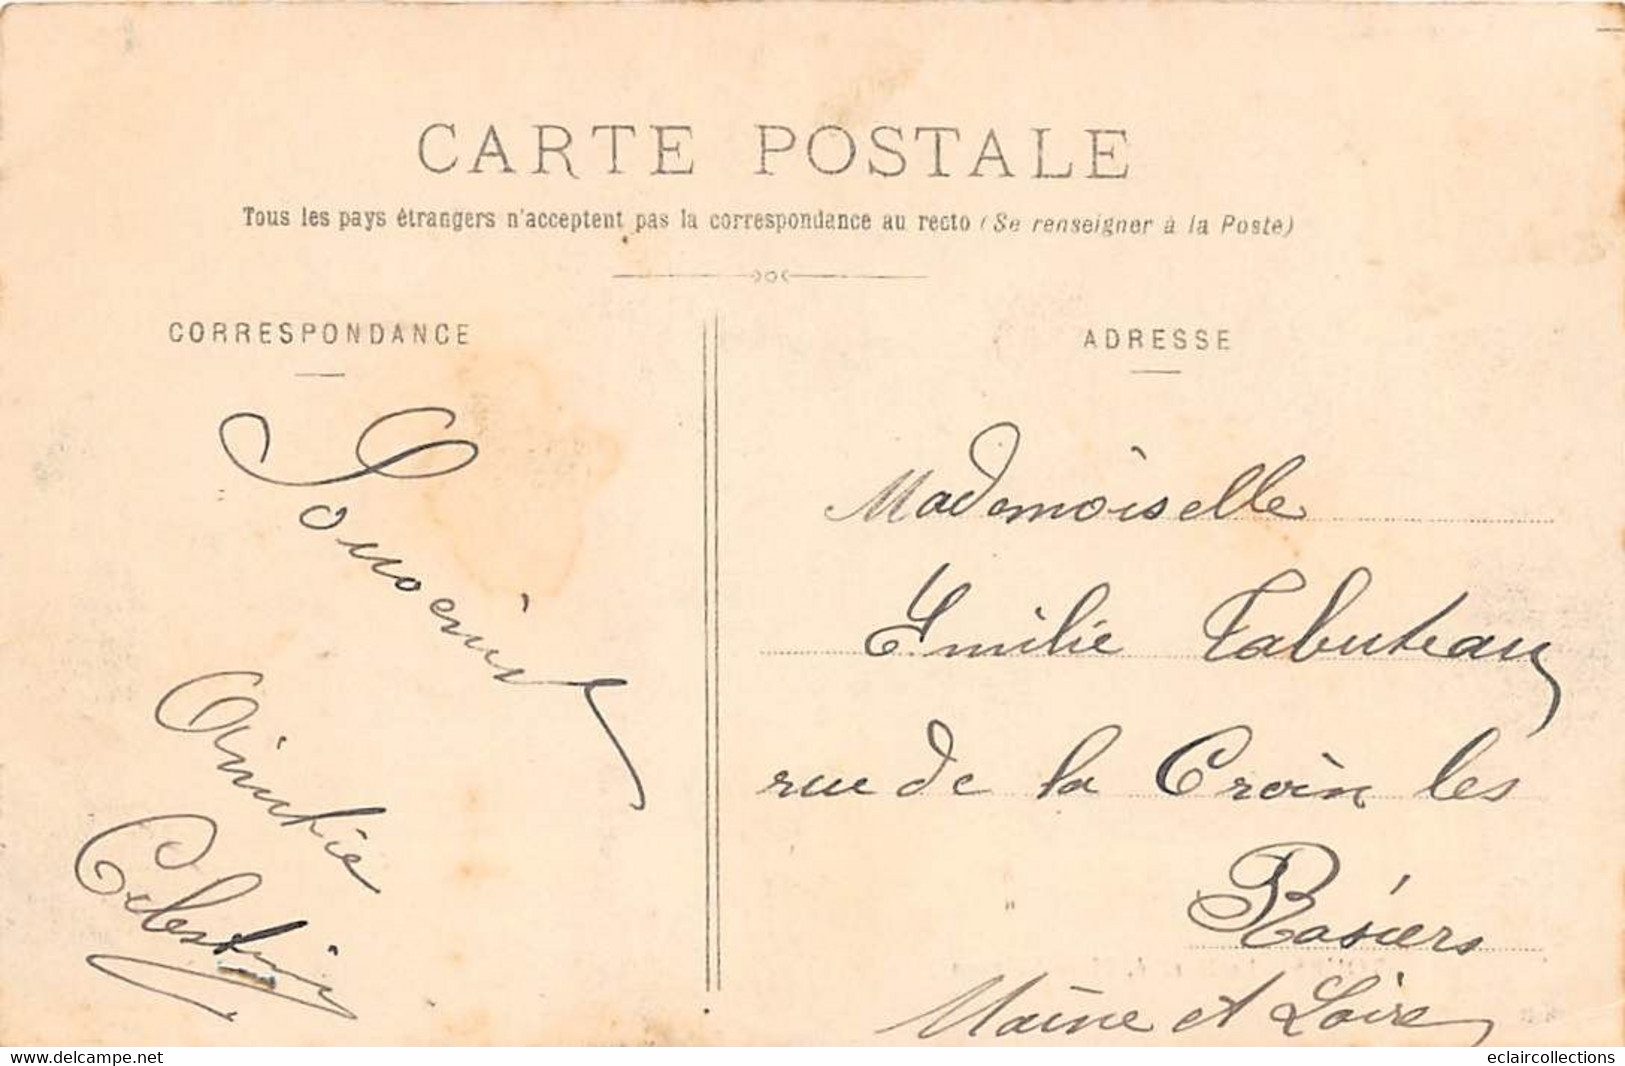 CARTE POSTALE
Tous les pays étrangers n'acceptent pas la correspondance au recto (Se renseigner à la Poste)
CORRESPONDANCE
Souvenir
Amitié
Célestin
ADRESSE
Mademoiselle
Emilie Tabuteau
rue de la Croix les
Rosiers
Maine et Loire
eclaircollections